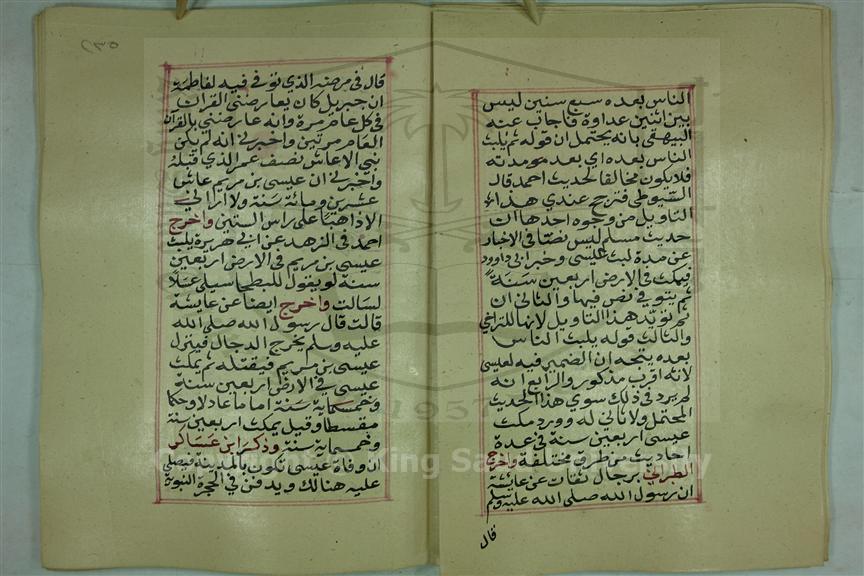 الناس بعده سبع سنين ليس
بين اثنين عداوة فاجاب عنه
البيهقي بانه يحتمل ان قوله ثم يلبث
الناس بعده اي بعد موته
فلا يكون مخالفا لحديث احمد قال
السيوطي فترجح عندي هذا
التاويل من وجوه احدها ان
حديث مسلم ليس نصا في الاخبار
عن مدة لبث عيسى وخبر ابي داوود
فيمكث في الارض اربعين سنة
ثم يتوفى نص فيها والثاني ان
ثم تؤيد هذا التاويل لانها للتراخي
والثالث قوله يلبث الناس
بعده يتجه ان الضمير فيه لعيسى
لانه اقرب مذكور والرابع انه
لم يرد في ذلك سوي هذا الحديث
المحتمل ولا ثاني له وورد مكث
عيسى اربعين سنة في عدة
احاديث من طرق مختلفة وخرج
الطبراني برجال ثقات عن عايشة
ان رسول الله صلى الله عليه وسلم
قال
قال في مرضه الذي توفي فيه لفاطمة
ان جبريل كان يعارضني القران
في كل عام مرة وانه عارضني بالقران
العام مرتين واخبرني انه لم يكن
نبي الا عاش نصف عمر الذي قبله
واخبرني ان عيسى بن مريم عاش
عشرين ومائة سنة ولا اراني
الا ذاهبا على راس الستين واخرج
احمد في الزهد عن ابي هريرة يلبث
عيسى بن مريم في الارض اربعين
سنة لو يقول للبطحا سيلي عسلا
لسالت واخرج ايضا عن عايشة
قالت قال رسول الله صلى الله
عليه وسلم يخرج الدجال فينزل
عيسى بن مريم فيقتله ثم يمكث
عيسى في الارض اربعين سنة
وخمسماية سنة اماما عادلا وحكما
مقسطا وقيل يمكث اربعين سنة
وخمسماية سنة وذكر ابن عساكر
ان وفاة عيسى تكون بالمدينة فيصلى
عليه هنالك ويدفن في الحجرة النبوية
1957
King Saud University